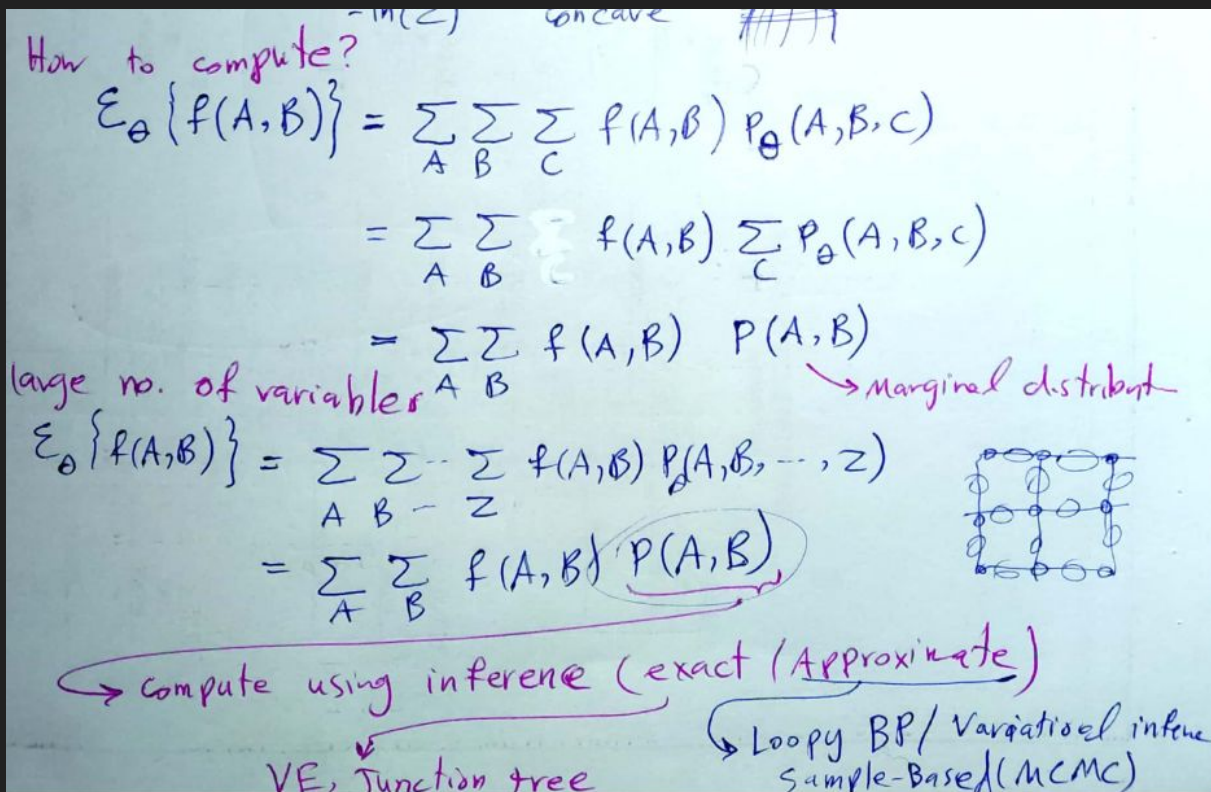 -ln(Z) concave
How to compute?
ε_θ {f(A,B)} = Σ_A Σ_B Σ_C f(A,B) P_θ(A,B,C)
= Σ_A Σ_B f(A,B) Σ_C P_θ(A,B,C)
= Σ_A Σ_B f(A,B) P(A,B)
→ Marginal distribut
large no. of variables
ε_θ {f(A,B)} = Σ_A Σ_B -- Σ_Z f(A,B) P_θ(A,B, ---, Z)
= Σ_A Σ_B f(A,B) P(A,B)
→ compute using inferene (exact / Approximate)
VE, Junction tree
→ Loopy BP/ Variatioel infene
Sample-Based (MCMC)